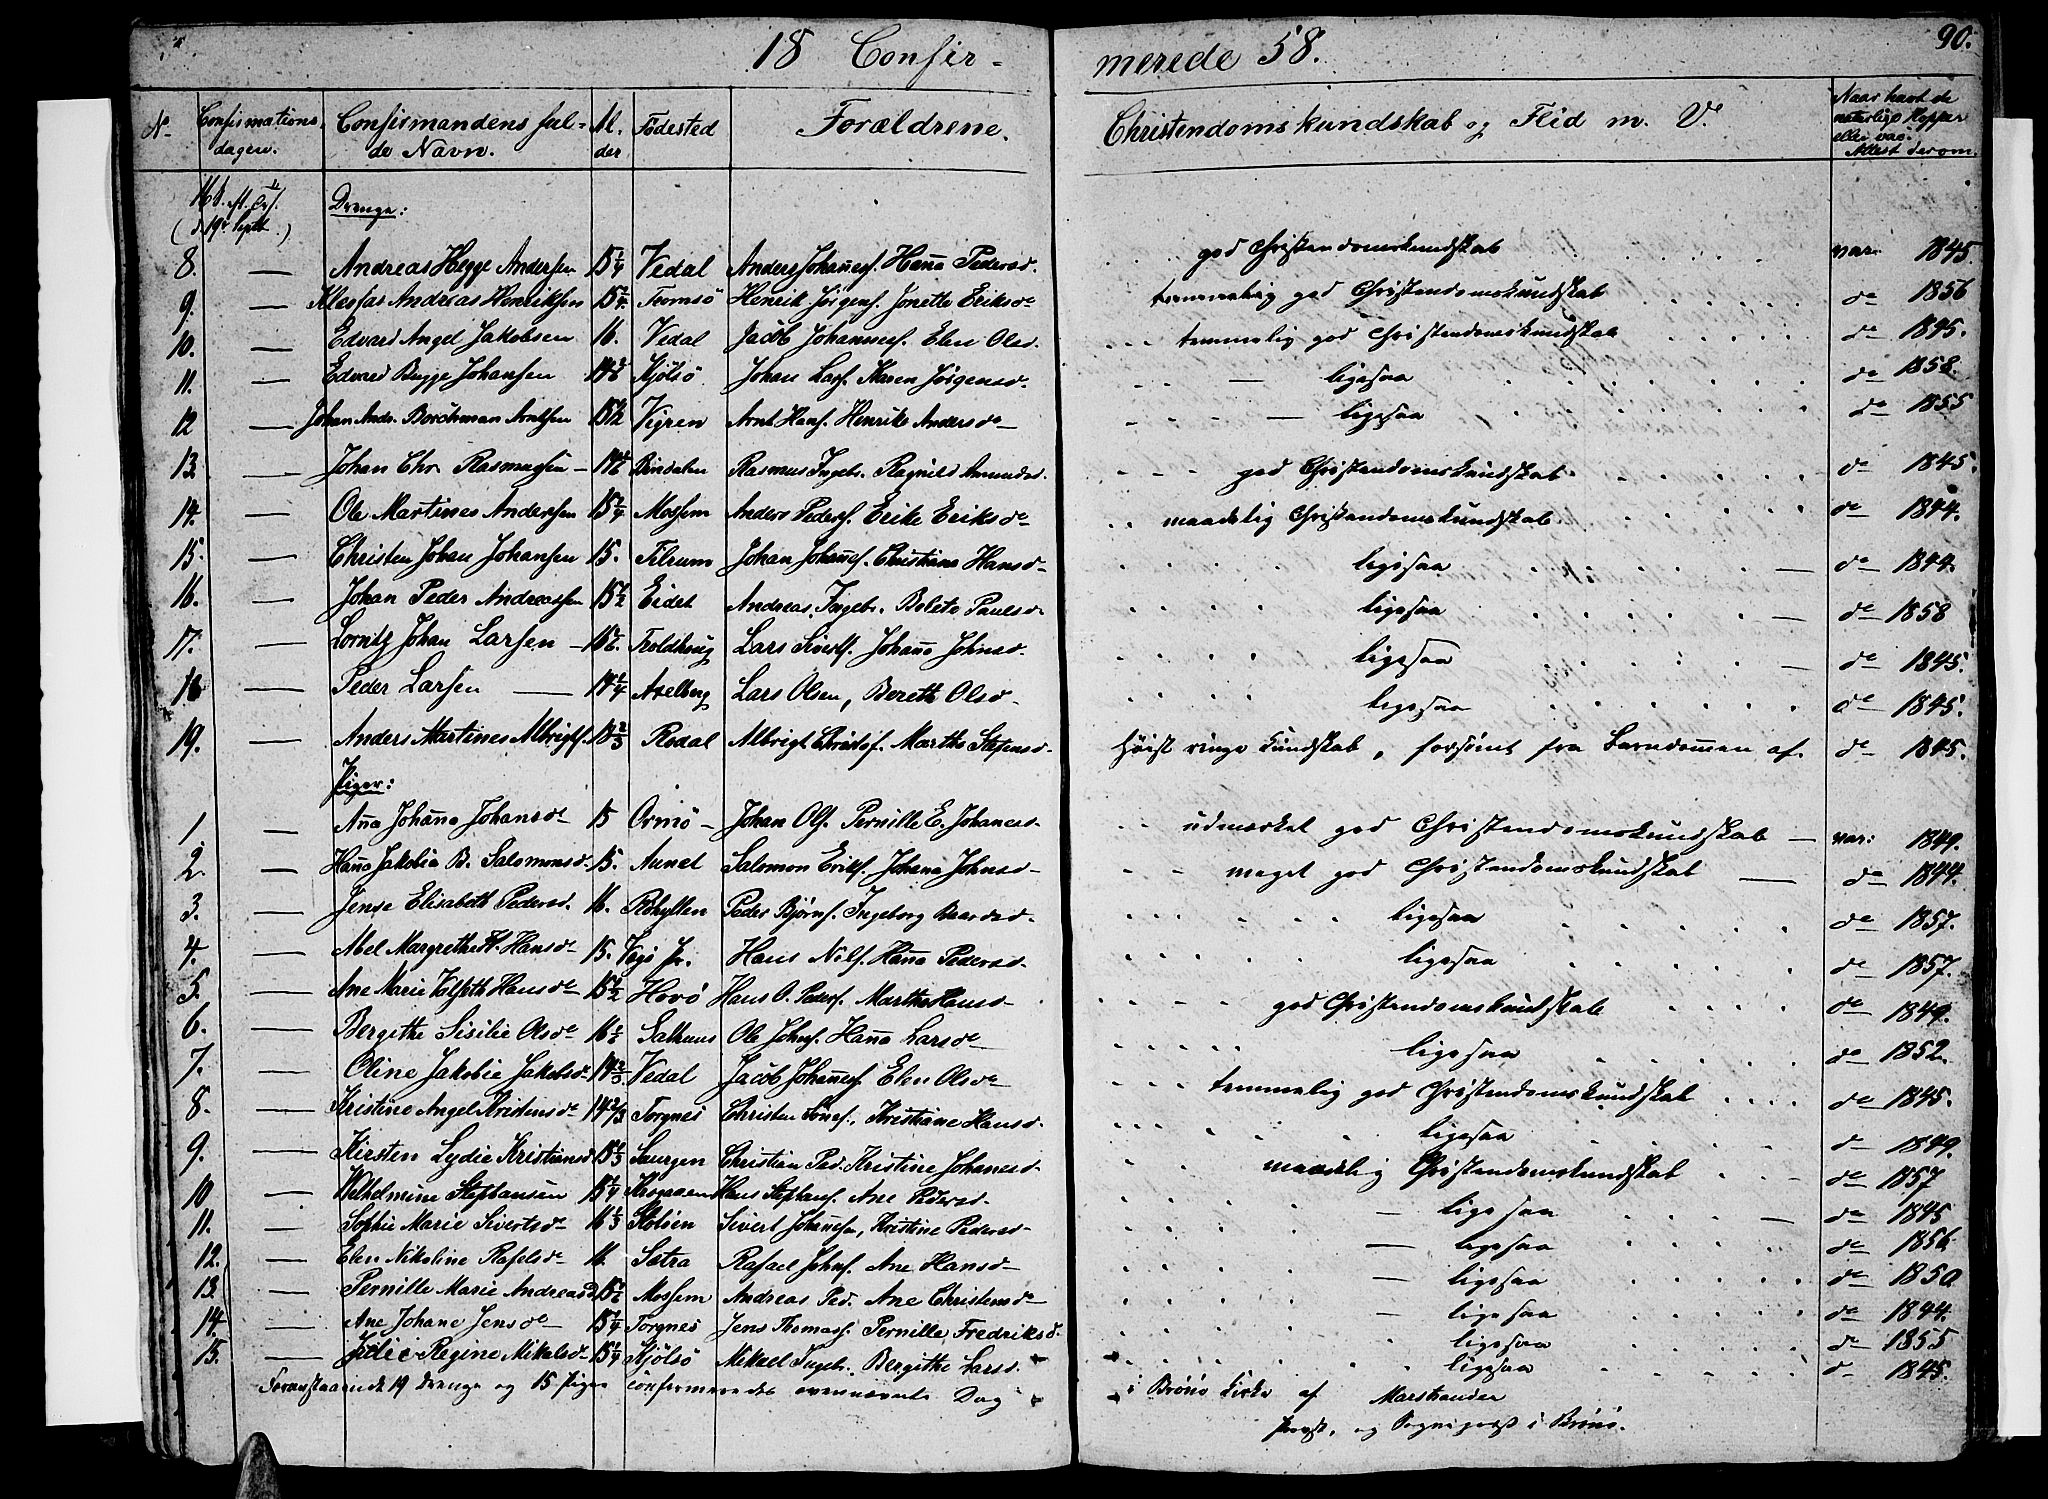 90.
18 Confir- merede 58.
No Confirmations dagen. Confirmandens ful- de Navn. Al- der Födested Forældrene. Christendomskundskab og Flid m. V. Naar havt de naturlige Kopper eller vac. Attest derom.
16 S. eft. Drenge:
(d. 19de Septb.)
8. — Andreas Hegge Andersen 15 1/4 Vedal Anders Johanesf. Hana Pedersd. god Christendomskundskab var: 1845.
9. — Andreas Henriksen 15 Tromsö Henrik Jörgenf. Jonette Eriksd. temmelig god Christendomskundskab do 1856
10. — Edvard Angel Jakobsen 16. Vedal Jacob Johannesf. Elen Olsd. temmelig god Christendomskundskab do 1845.
11. — Edvard Bugge Johansen Kjölsö Johan Larsf. Karen Jörgensd. — ligesaa do 1858.
12 — Johan Andr. Borchman Arntsen 15 1/2 Vigren Arnt Hansf. Henrike Andersd. — ligesaa do 1855
13. — Johan Chr. Rasmussen Bindalen Rasmus Ingebr. Ragnild Amundsd. god Christendomskundskab do 1845.
14. — Ole Martines Andersen 15 Mossem Anders Pedersf. Erike Eriksd. maadelig Christendomskundskab do 1844.
15. — Christen Johan Johansen 15. Tilrum Johan Johanesf. Christiana Hansd. ligesaa — do 1844.
16. — Johan Peder Andreassen 15 1/2 Eidet Andreas Ingebr. Bolete Paulsd. ligesaa — do 1858
17. — Lorntz Johan Larsen Troldhaug Lars Sivertsf. Johana Johnsd. ligesaa — do 1845.
18 — Peder Larsen — 14 Axelberg Lars Olsen, Bereth Olsd. ligesaa do 1845.
19. — Anders Martines Albrigtsf. Rodal Albrigt Marthe Stefensd. höist ringe Kundskab, forsömt fra Barndomen af. do 1845.
Piger:
1 — Ana Johana Johansd. 15 Ormö Johan Olsf. Pernille E. Johanesd. udmerket god Christendomskundskab — var: 1849.
2. — Hana Jakobia B. Salomonsd. 15. Aunet Salomon Eriksf. Johana Johnsd. meget god Christendomskundskab — do 1844.
3. — Jense Elisabeth Pedersd. 16. Peder Björnsf. Ingeborg Baardsd. ligesaa do 1857.
4. — Abel Margrethe H. Hansd. 15. Vegö Pr. Hans Nilsf. Hana Pedersd. ligesaa do 1857.
5. — Ane Marie Hansd. 15 1/2 Hovö Hans O. Pedersf. Marthe Hansd. god Christendomskundskab do 1849.
6. — Bergithe Sisilie Olsd. 16 Salhuus Ole Johnsf. Hana Larsd. ligesaa do 1852.
7. — Oline Jakobie Jakobsd. 14 2/3 Vedal Jacob Johanesf. Elen Olsd. temmelig god Christendomskundskab do 1845.
8. — Kristine Angel Kristensd. 14 2/3 Torgnes Christen Kristiane Hansd. ligesaa do 1849.
9. — Kirsten Lydie Kristiansd. 15 Saurgen Christian Ped. Kristine Johanesd. maadelig Christendomskundskab do 1857
10 — Wilhelmine Stephansen 15 1/4 Hans Stephansf. Ane Pedersd. — ligesaa — do 1845
11. — Sophie Marie Sivertsd. 16 1/3 Stölsen Sivert Johanesen, Kristine Pedersd. — ligesaa do 1856
12. — Elen Nikoline Rafelsd. 16. Sætra Rafael Johnsf. Ane Hansd. — ligesaa do 1850
13. — Pernille Marie Andreasd. 15 Mossem Andreas Ped. Ane Christensd. — ligesaa do 1844.
14. — Ane Johane Jensd. 15 1/4 Torgnes Jens Thomasf. Pernille Fredriksd. ligesaa do 1855
15. — Julie Regine Mikalsd. 15 1/4 Kjölsö Mikael Ingebr. Bergithe Larsd. ligesaa do 1845.
Foranstaaende 19 Drenge og 15 Piger confirmerede ovennævnte Dag i Brönö Kirke af Marstrander
Provst, og Sognepræst i Brönö.